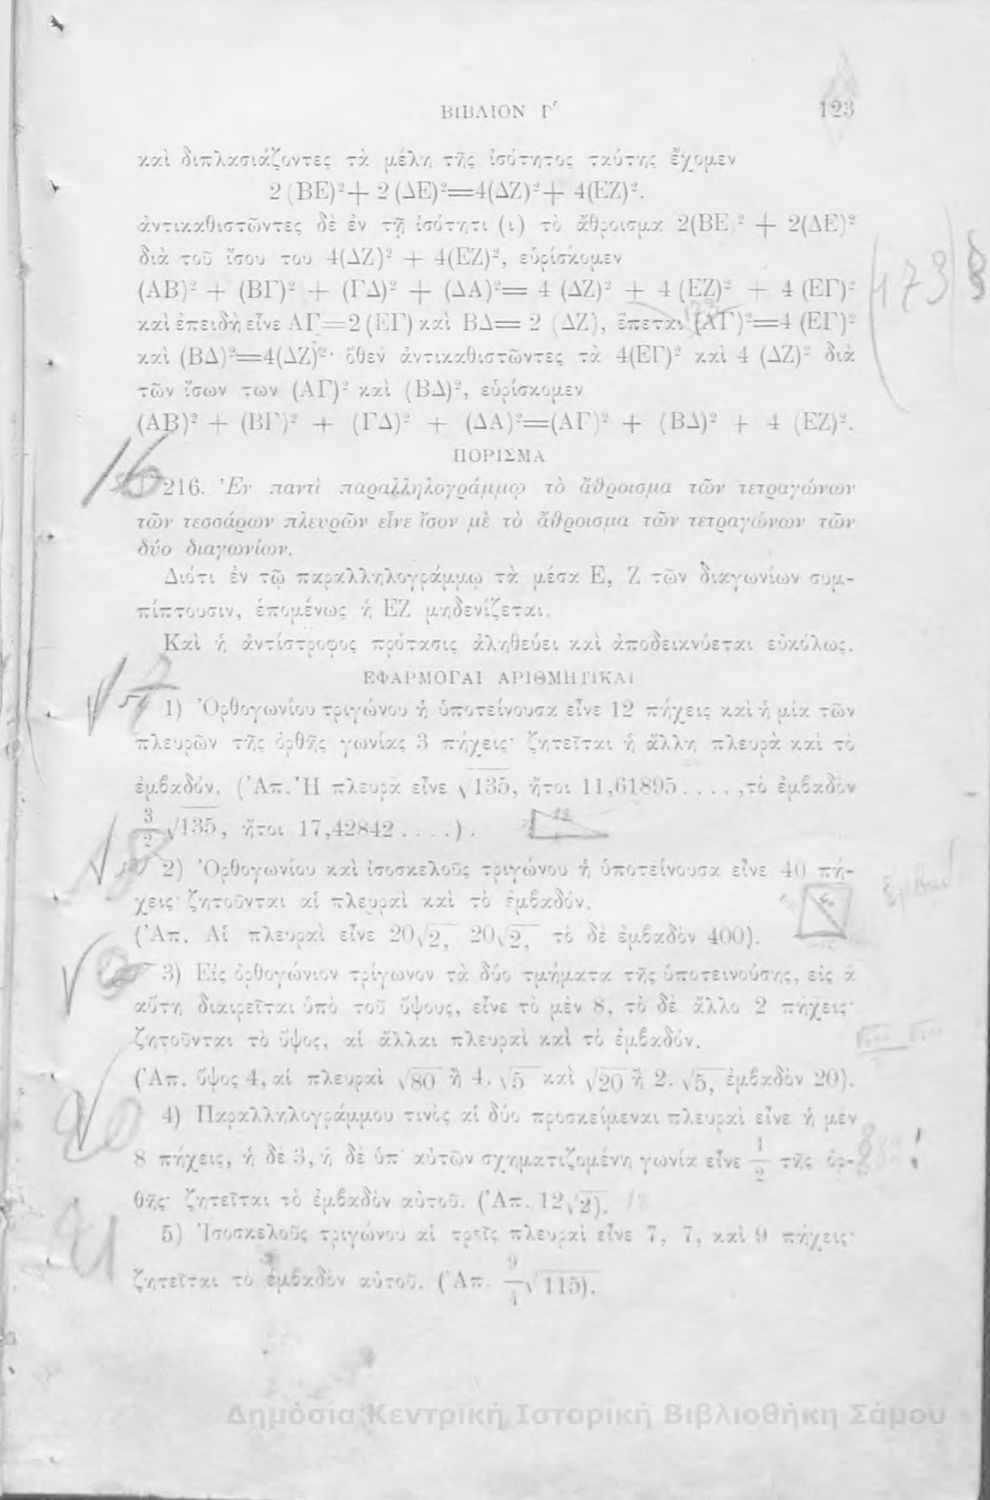 ΒΙΒΛΙΟΝ Γ΄ 123
καὶ διπλασιάζοντες τὰ μέλη τῆς ἰσότητος ταύτης ἔχομεν
2 (ΒΕ)²+ 2 (ΔΕ)²=4(ΔΖ)²+ 4(ΕΖ)².
ἀντικαθιστῶντες δὲ ἐν τῇ ἰσότητι (ι) τὸ ἄθροισμα 2(ΒΕ)² + 2(ΔΕ)²
διὰ τοῦ ἴσου του 4(ΔΖ)² + 4(ΕΖ)², εὑρίσκομεν
(ΑΒ)² + (ΒΓ)² + (ΓΔ)² + (ΔΑ)²= 4 (ΔΖ)² + 4 (ΕΖ)² + 4 (ΕΓ)²
καὶ ἐπειδὴ εἶνε ΑΓ=2 (ΕΓ) καὶ ΒΔ= 2 (ΔΖ), ἕπεται (ΑΓ)²=4 (ΕΓ)²
καὶ (ΒΔ)²=4(ΔΖ)²· ὅθεν ἀντικαθιστῶντες τὰ 4(ΕΓ)² καὶ 4 (ΔΖ)² διὰ
τῶν ἴσων των (ΑΓ)² καὶ (ΒΔ)², εὑρίσκομεν
(ΑΒ)² + (ΒΓ)² + (ΓΔ)² + (ΔΑ)²=(ΑΓ)² + (ΒΔ)² + 4 (ΕΖ)².
173
ΠΟΡΙΣΜΑ
16
216. Ἐν παντὶ παραλληλογράμμῳ τὸ ἄθροισμα τῶν τετραγώνων
τῶν τεσσάρων πλευρῶν εἶνε ἴσον μὲ τὸ ἄθροισμα τῶν τετραγώνων τῶν
δύο διαγωνίων.
Διότι ἐν τῷ παραλληλογράμμῳ τὰ μέσα Ε, Ζ τῶν διαγωνίων συμ-
πίπτουσιν, ἑπομένως ἡ ΕΖ μηδενίζεται.
Καὶ ἡ ἀντίστροφος πρότασις ἀληθεύει καὶ ἀποδεικνύεται εὐκόλως.
ΕΦΑΡΜΟΓΑΙ ΑΡΙΘΜΗΤΙΚΑΙ
1) Ὀρθογωνίου τριγώνου ἡ ὑποτείνουσα εἶνε 12 πήχεις καὶ ἡ μία τῶν
πλευρῶν τῆς ὀρθῆς γωνίας 3 πήχεις· ζητεῖται ἡ ἄλλη πλευρὰ καὶ τὸ
ἐμβαδόν. (Ἀπ. Ἡ πλευρὰ εἶνε √135, ἤτοι 11,61895. . . . ,τὸ ἐμβαδὸν
3/2 √135, ἤτοι 17,42842 . . . .).
2) Ὀρθογωνίου καὶ ἰσοσκελοῦς τριγώνου ἡ ὑποτείνουσα εἶνε 40 πή-
χεις· ζητοῦνται αἱ πλευραὶ καὶ τὸ ἐμβαδόν.
(Ἀπ. Αἱ πλευραὶ εἶνε 20√2, 20√2, τὸ δὲ ἐμβαδὸν 400).
3) Εἰς ὀρθογώνιον τρίγωνον τὰ δύο τμήματα τῆς ὑποτεινούσης, εἰς ἃ
αὕτη διαιρεῖται ὑπὸ τοῦ ὕψους, εἶνε τὸ μὲν 8, τὸ δὲ ἄλλο 2 πήχεις·
ζητοῦνται τὸ ὕψος, αἱ ἄλλαι πλευραὶ καὶ τὸ ἐμβαδόν.
(Ἀπ. ὕψος 4, αἱ πλευραὶ √80 ἢ 4. √5 καὶ √20 ἢ 2. √5, ἐμβαδὸν 20).
4) Παραλληλογράμμου τινὸς αἱ δύο προσκείμεναι πλευραὶ εἶνε ἡ μὲν
8 πήχεις, ἡ δὲ 3, ἡ δὲ ὑπ' αὐτῶν σχηματιζομένη γωνία εἶνε 1/2 τῆς ὀρ-
θῆς· ζητεῖται τὸ ἐμβαδὸν αὐτοῦ. (Ἀπ. 12√2).
5) Ἰσοσκελοῦς τριγώνου αἱ τρεῖς πλευραὶ εἶνε 7, 7, καὶ 9 πήχεις·
ζητεῖται τὸ ἐμβαδὸν αὐτοῦ. (Ἀπ. 9/4 √115).
Δημόσια Κεντρική Ιστορική Βιβλιοθήκη Σάμου